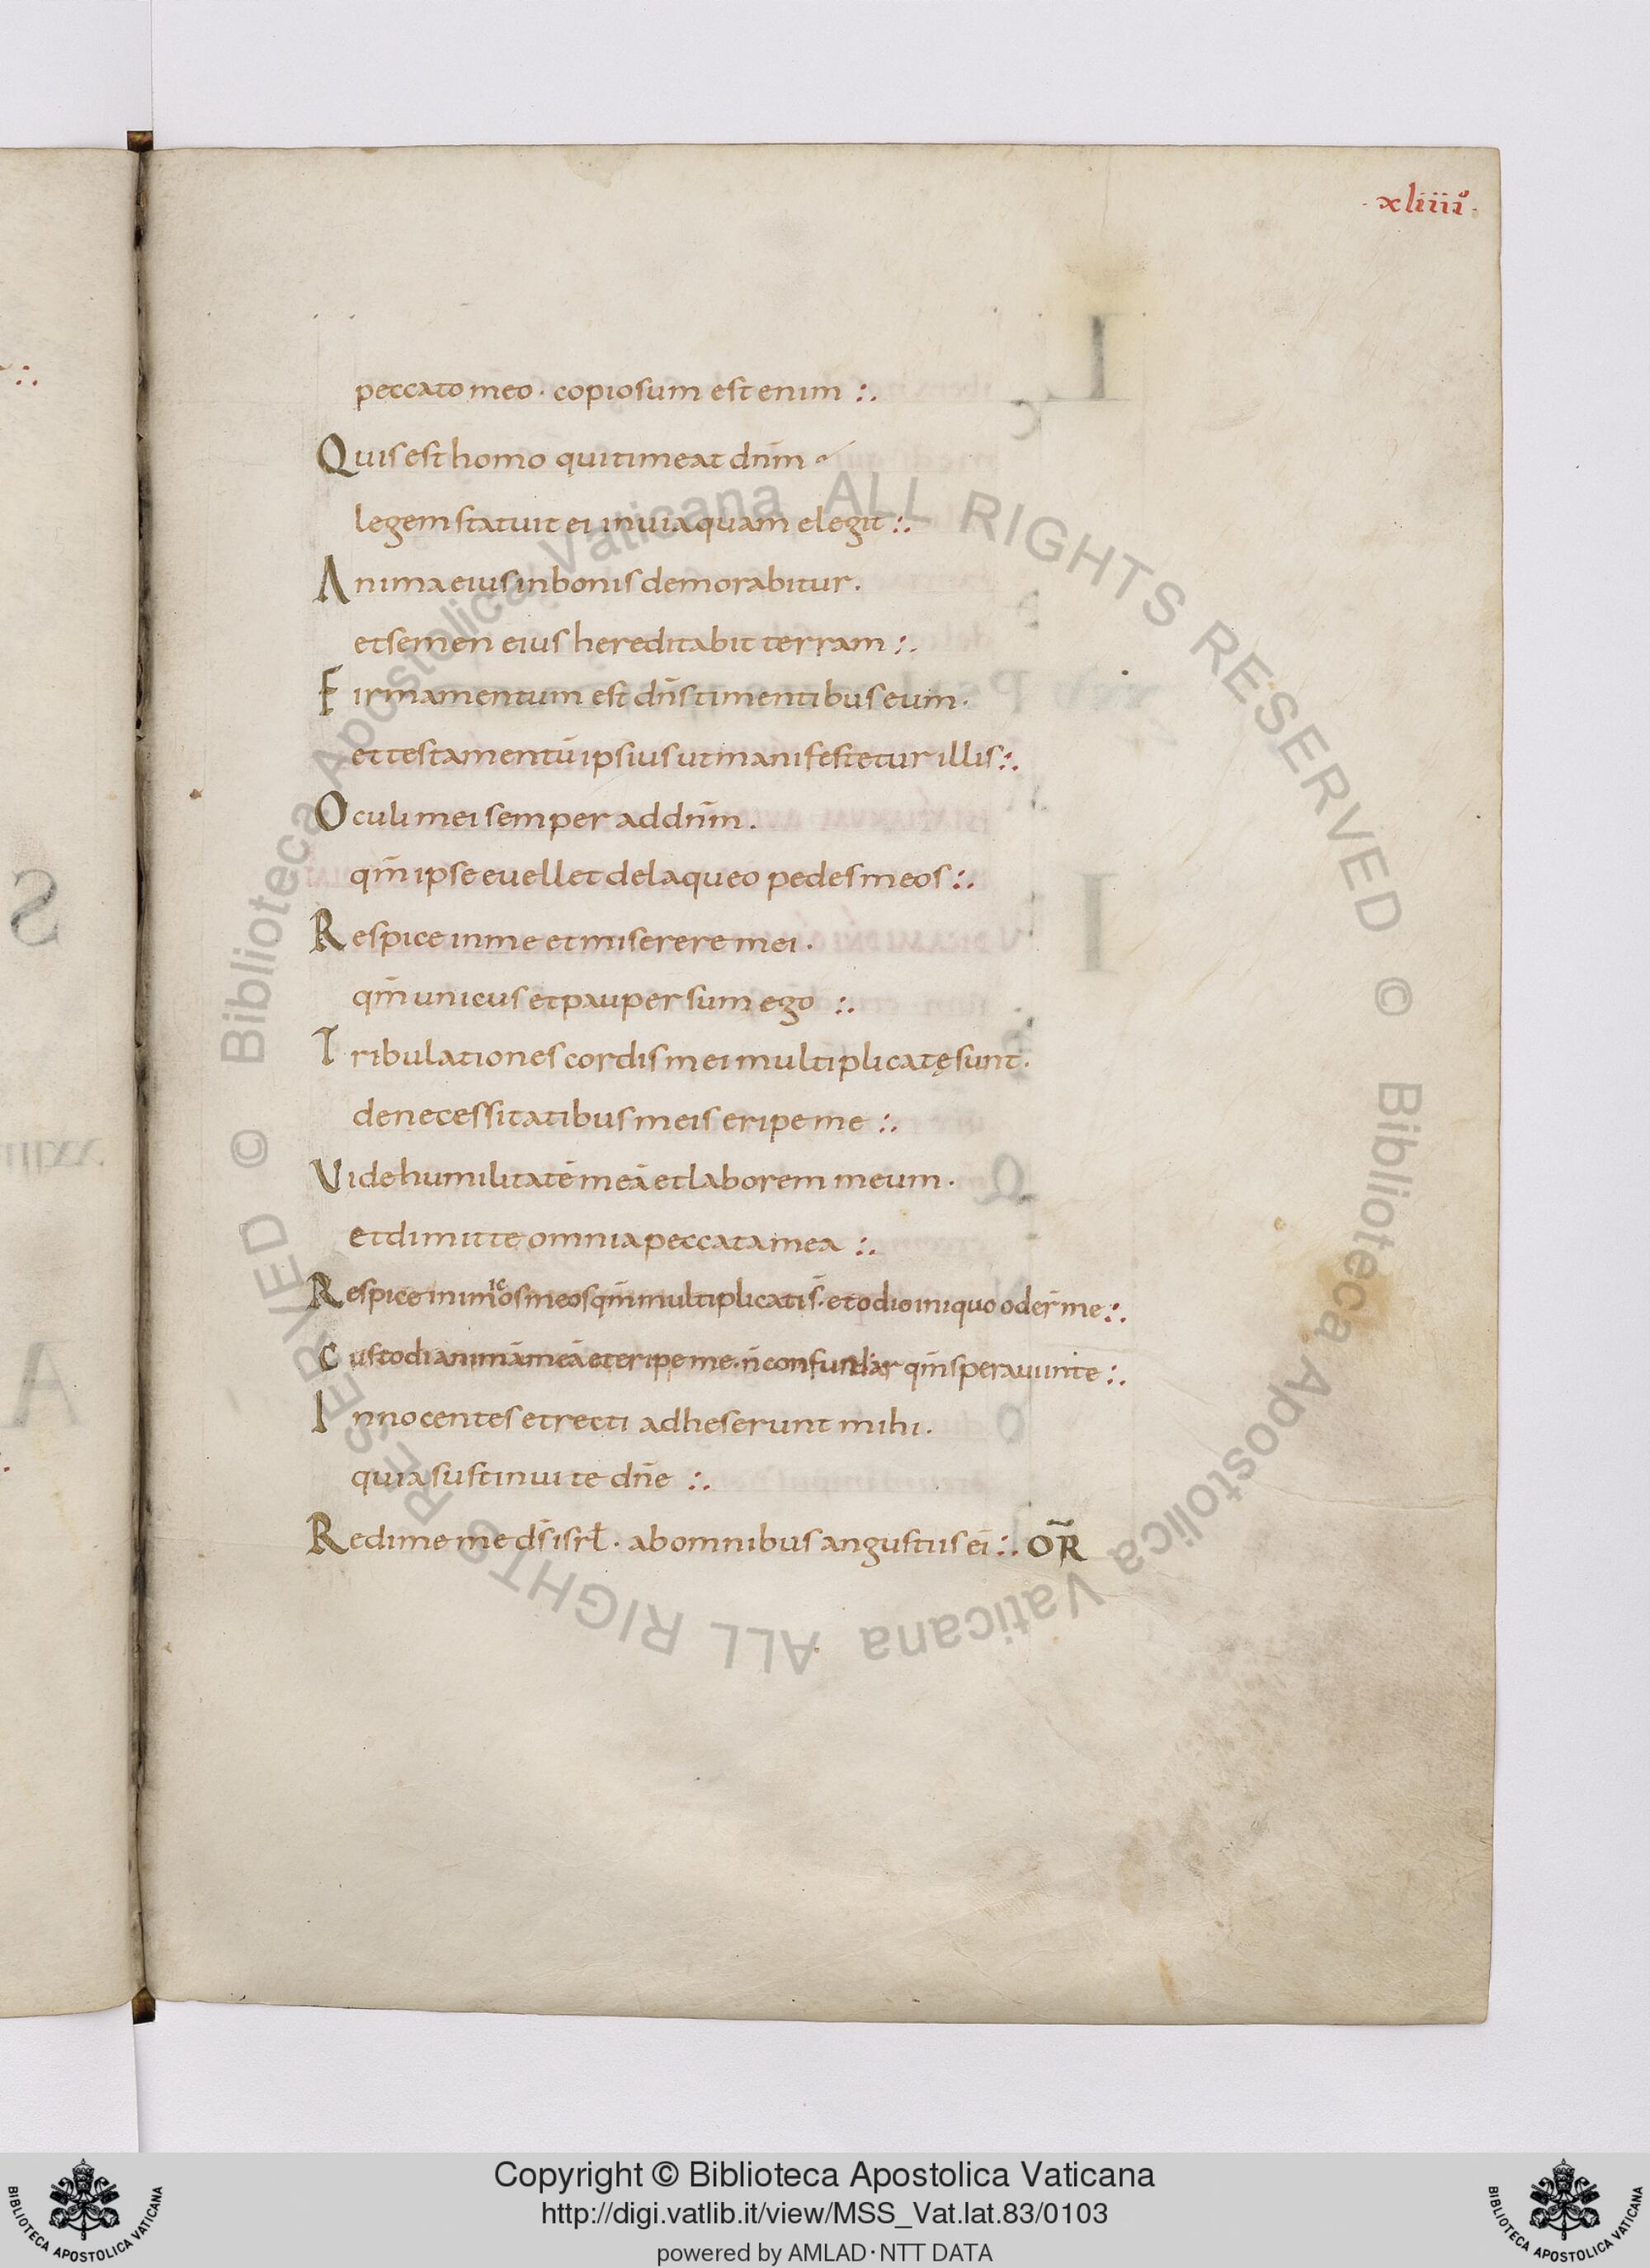 ·xliiii°·
peccato meo · copiosum est enim :.
Quis est homo qui timeat dn̄m
legem statuit ei in uia quam elegit :.
Anima eius in bonis demorabitur .
et semen eius hereditabit terram :.
Firmamentum est dn̄s timentibus eum .
et testamentū ipsius ut manifestetur illis :.
Oculi mei semper ad dn̄m .
qm̄ ipse euellet de laqueo pedes meos :.
Respice in me et miserere mei .
qm̄ unicus et pauper sum ego :.
Tribulationes cordis mei multiplicatę sunt .
de necessitatibus meis eripe me :.
Vide humilitatē meā et laborem meum .
et dimitte omnia peccata mea :.
Respice inimicos meos qm̄ multiplicati s̄ . et odio iniquo oder̄ me :.
Custodi animā meā et eripe me . n̄ confundar qm̄ speraui in te :.
Innocentes et recti adheserunt mihi .
quia sustinui te dn̄e :.
Redime me ds̄ isrł . ab omnibus angustiis ei̅ :. OR̄
© Biblioteca Apostolica Vaticana ALL RIGHTS RESERVED
© Biblioteca Apostolica Vaticana ALL RIGHTS RESERVED
Copyright © Biblioteca Apostolica Vaticana
http://digi.vatlib.it/view/MSS_Vat.lat.83/0103
powered by AMLAD·NTT DATA
BIBLIOTECA APOSTOLICA VATICANA
BIBLIOTECA APOSTOLICA VATICANA